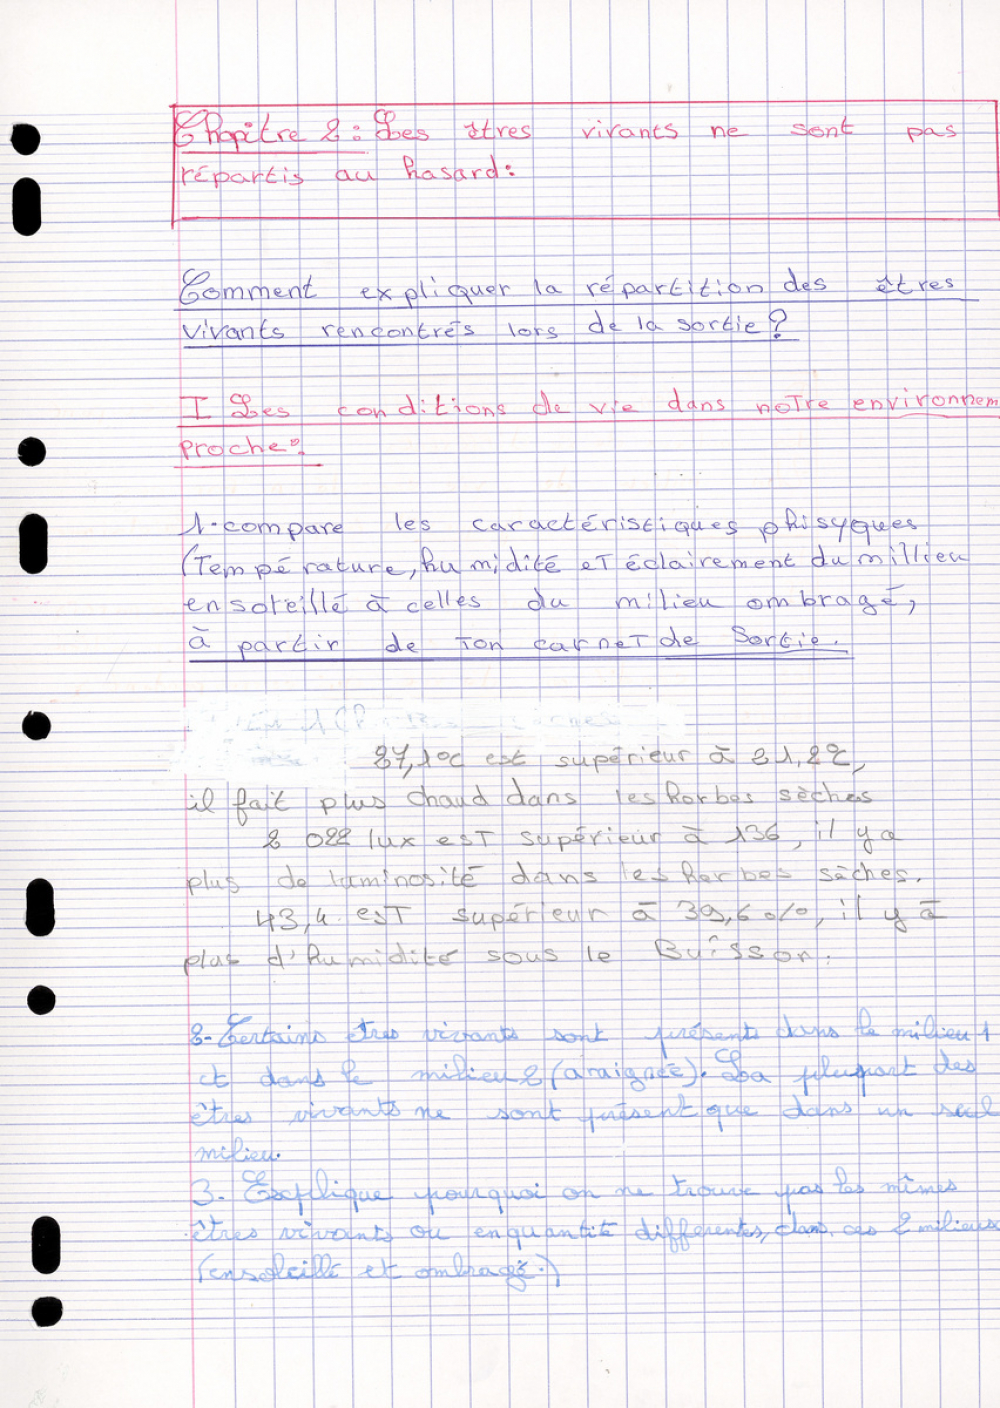 Chapitre 2 : Les êtres vivants ne sont pas
répartis au hasard :
Comment expliquer la répartition des êtres
vivants rencontrés lors de la sortie ?
I Les conditions de vie dans notre environnem
proche :
1-compare les caractéristiques phisyques
(Température, humidité et éclairement du millieu
ensoleillé à celles du milieu ombragé,
à partir de ton carnet de Sortie.
27,1°c est supérieur à 21,2°C,
il fait plus chaud dans les herbes sèches
2 022 lux est supérieur à 136, il y a
plus de luminosité dans les herbes sèches.
43,4 est supérieur à 39,6 %, il y à
plus d'humidité sous le Buîsson.
2- Certains êtres vivants sont présents dans le milieu 1
et dans le milieu 2 (araignée). La plupart des
êtres vivants ne sont présent que dans un seul
milieu.
3- Explique pourquoi on ne trouve pas les mêmes
êtres vivants ou en quantité differentes, dans ces 2 milieux
(ensoleillé et ombragé.)